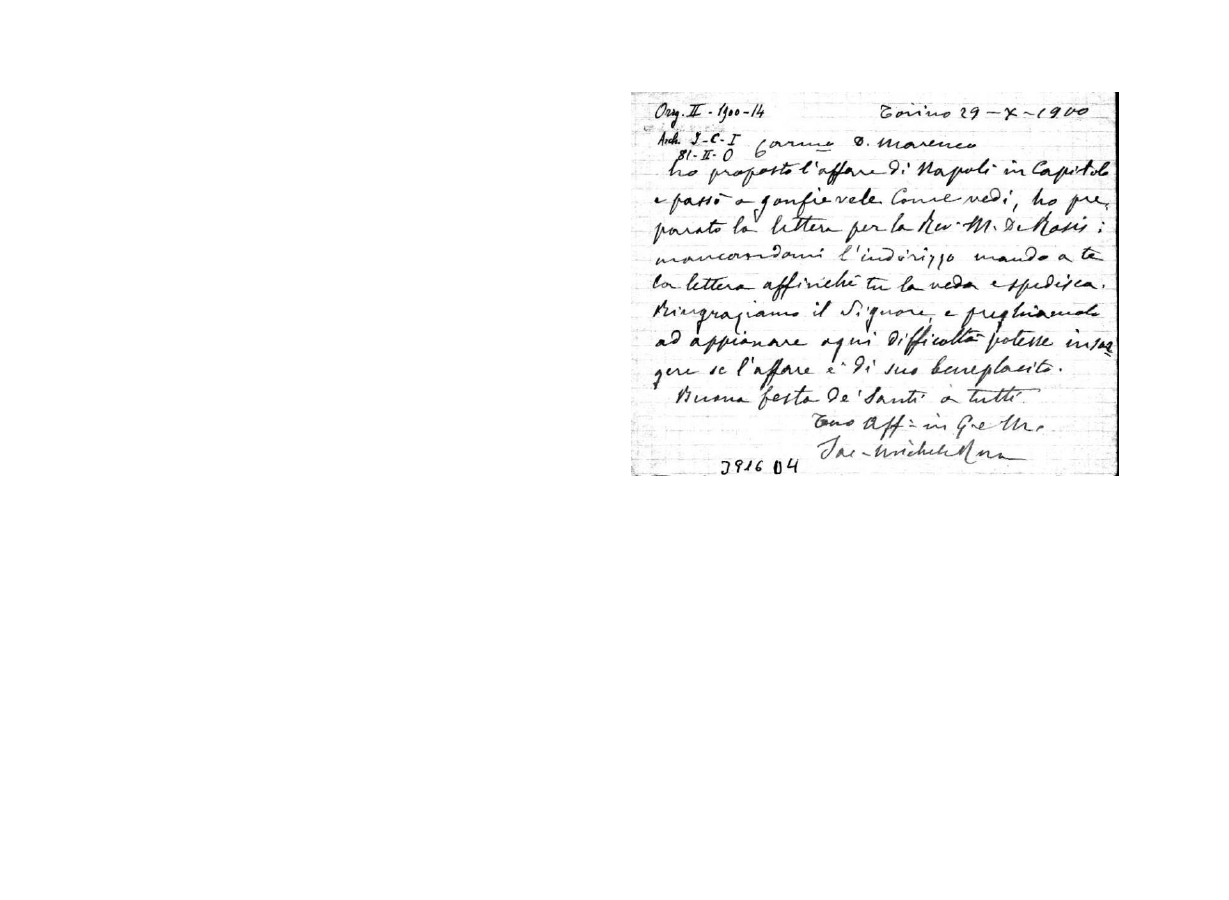 Org. II - 1900-14
Torino 29-X-1900
Arch. I-C-I
81-II-O
Carmo D. Marenco
ho proposto l'affare di Napoli in Capitolo
e passò a gonfie vele. Come vedi, ho pre-
parato la lettera per la Rev. M. De Rosis:
mancandomi l'indirizzo mando a te
la lettera affinché tu la veda e spedisca.
Ringraziamo il Signore, e preghiamolo
ad appianare ogni difficoltà potesse insor
gere se l'affare è di suo beneplacito.
Buona festa de' Santi a tutti.
Tuo Aff: in G e M.
Sac. Michele Rua
3916 D4